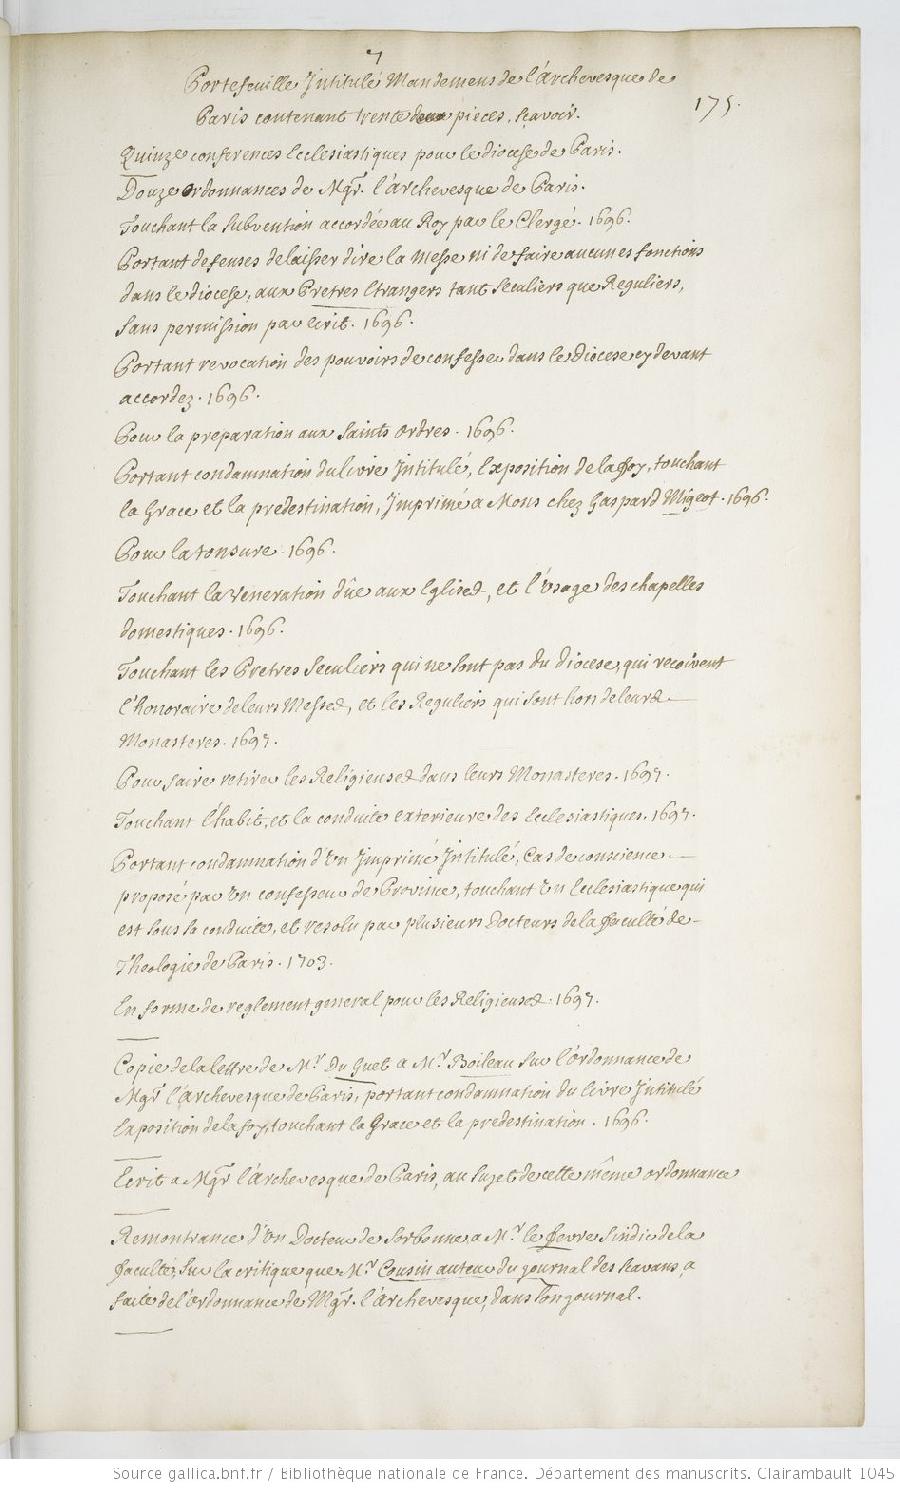 7
Portefeuille Intitulé Mandemens de l'archevesque de
Paris contenant trente deux pieces, sçavoir.
175.
Quinze conferences Ecclesiastiques pour le diocese de Paris.
Douze ordonnances de Mgr. l'archevesque de Paris.
Touchant la subvention accordée au Roy par le Clergé. 1696.
Portant defenses delaisser dire la messe ni de faire aucunes fonctions
dans le diocese, aux Pretres Etrangers tant seculiers que Reguliers,
sans permission par ecrit. 1696.
Portant revocation des pouvoirs de confesser dans le diocese cy devant
accordez. 1696.
Pour la preparation aux saints ordres. 1696.
Portant condamnation du livre Intitulé, Exposition de la foy, touchant
la Grace et la predestination, Imprimé a Mons chez Gaspard Migeot. 1696.
Pour la tonsure. 1696.
Touchant la veneration düe aux Eglises, et l'usage des chapelles
domestiques. 1696.
Touchant les Pretres seculiers qui ne sont pas du diocese, qui recoivent
l'honoraire de leurs Messes, et les Reguliers qui sont hors de leurs
Monasteres. 1697.
Pour faire retirer les Religieuses dans leurs Monasteres. 1697.
Touchant l'habit, et la conduite exterieure des Ecclesiastiques. 1697.
Portant condamnation d'un Imprimé Intitulé, Cas de conscience
proposé par un confesseur de Province, touchant un Ecclesiastique qui
est sous sa conduite, et resolu par plusieurs Docteurs de la faculté de
Theologie de Paris. 1703.
En forme de reglement general pour les Religieuses. 1697.
Copie de la lettre de Mr. Du Guet a Mr. Boileau sur l'ordonnance de
Mgr l'archevesque de Paris, portant condamnation du livre Intitulé
Exposition de la foy, touchant la Grace et la predestination. 1696.
Ecrit a Mgr l'archevesque de Paris, au sujet de cette même ordonnance
Remontrance d'un Docteur de Sorbonne a Mr. le fevre sindic de la
faculté, sur la critique que Mr. Cousin auteur du journal des sçavans, a
faite de l'ordonnance de Mgr. l'archevesque, dans son journal.
Source gallica.bnf.fr / Bibliothèque nationale de France. Département des manuscrits. Clairambault 1045